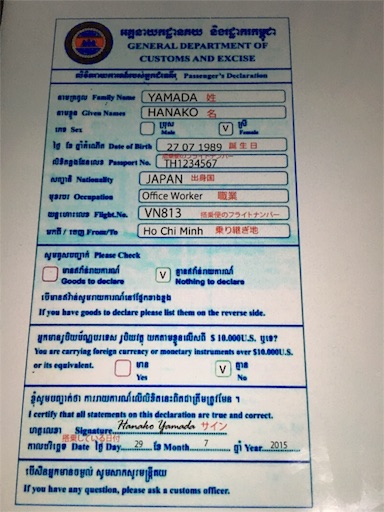 អគ្គនាយកដ្ឋានគយ និងរដ្ឋាករកម្ពុជា
GENERAL DEPARTMENT OF
CUSTOMS AND EXCISE
Passenger's Declaration
នាមត្រកូល Family Name YAMADA 姓
នាមខ្លួន Given Names HANAKO 名
ភេទ Sex ប្រុស Male V ស្រី Female
ថ្ងៃ ខែ ឆ្នាំកំណើត Date of Birth 27 07 1989 誕生日
搭乗便のフライトナンバー
Passport No. TH1234567
សញ្ជាតិ Nationality JAPAN 出身国
មុខរបរ Occupation Office Worker 職業
Flight.No. VN813 搭乗便のフライトナンバー
មកពី / ចេញ From/To Ho Chi Minh 乗り継ぎ地
សូមគូសបញ្ជាក់ Please Check
Goods to declare V Nothing to declare
If you have goods to declare please list them on the reverse side.
$ 10.000U.S.
You are carrying foreign currency or monetary instruments over $10.000U.S.
or its equivalent. មាន Yes V គ្មាន No
I certify that all statements on this declaration are true and correct.
ហត្ថលេខា Signature Hanako Yamada サイン
搭乗している日付
កាលបរិច្ឆេទ Date ថ្ងៃ Day 29 ខែ Month 7 ឆ្នាំ Year 2015
If you have any question, please ask a customs officer.